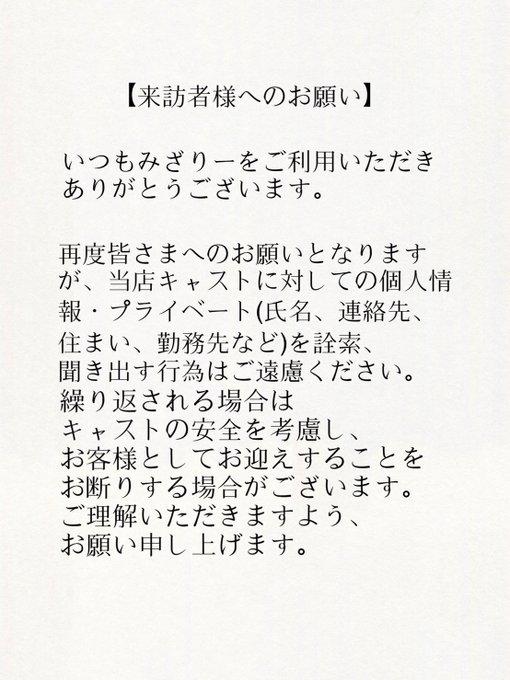 【来訪者様へのお願い】
いつもみざりーをご利用いただき
ありがとうございます。
再度皆さまへのお願いとなります
が、当店キャストに対しての個人情
報・プライベート(氏名、連絡先、
住まい、勤務先など)を詮索、
聞き出す行為はご遠慮ください。
繰り返される場合は
キャストの安全を考慮し、
お客様としてお迎えすることを
お断りする場合がございます。
ご理解いただきますよう、
お願い申し上げます。